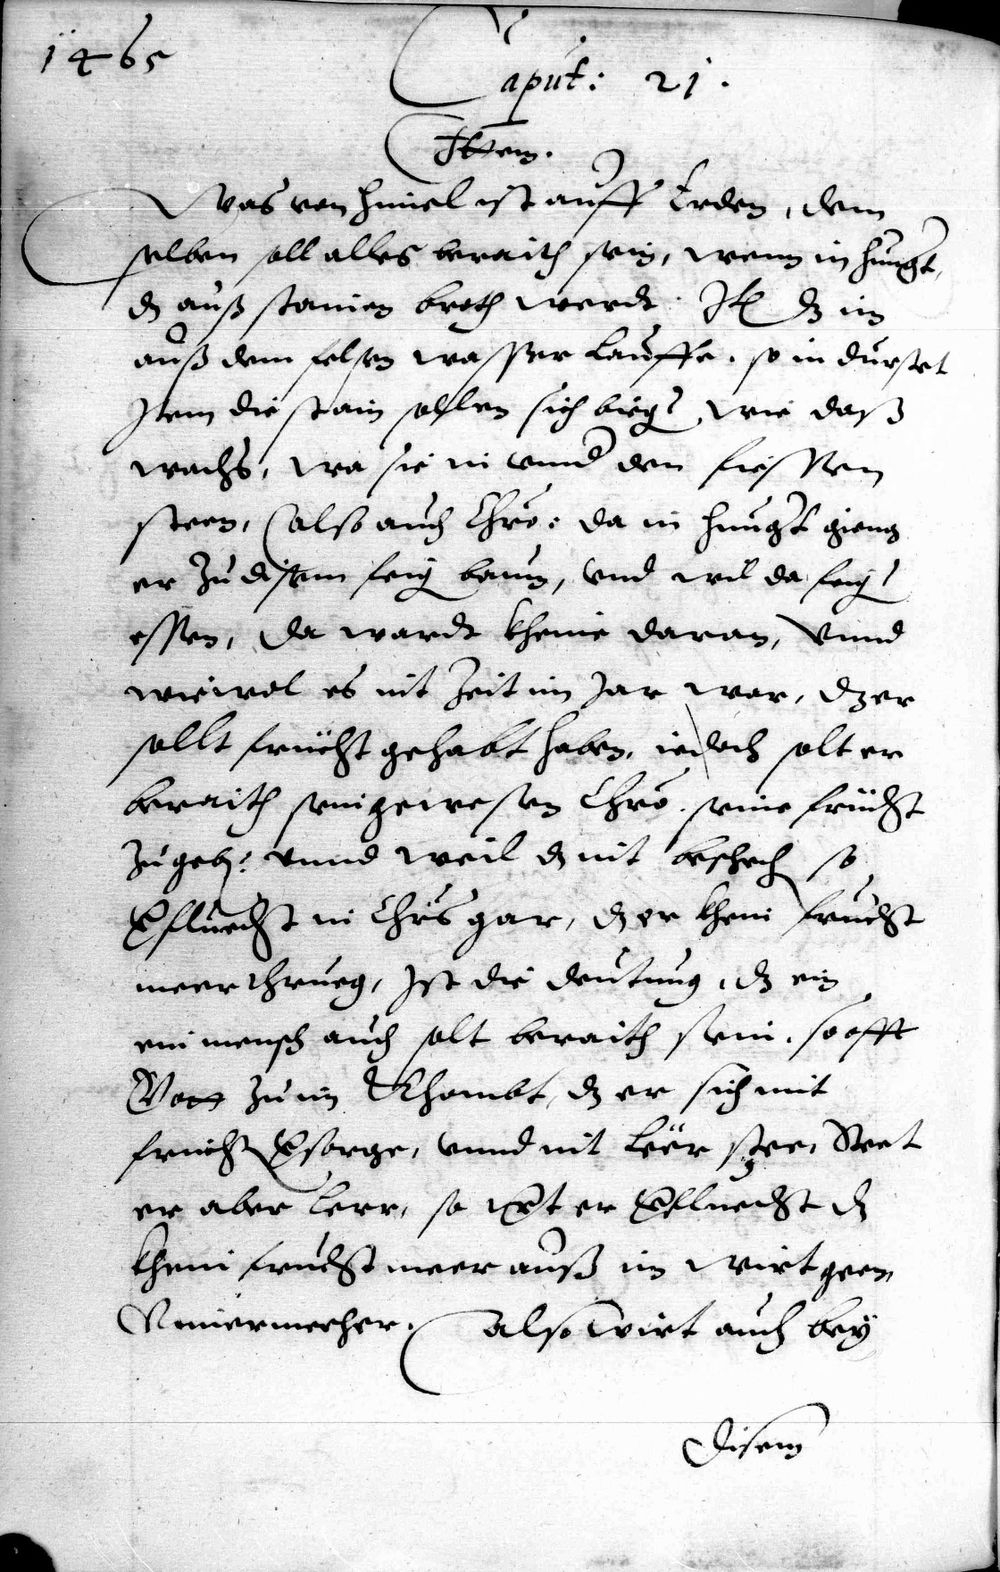 1465
Caput: 21.
Ittem.
Was von himel ist auff Erden, dem
selben soll alles beraith sein, wenn in hungt,
dz auß stainen broth werdt. Itẽ dz im
auß dem felsen wasser lauffe, so in durstet
Item die stain sollen sich biegẽ wie daß
wachs, wa sie in vnnd den fiessen
steen, also auch Chrõ: da in hungt gieng
er zu disem feig baum, vnd wil da feigẽ
essen, da wardt kheine daran, vnnd
wiewol es nit zeit im Jar war, dz er
sollt frücht gehabt haben, iedoch solt er
beraith sein gewesen Chrõ. seine frücht
zugebẽ: vnnd weil dz nit beschech so
vfluecht in Chrs gar, dz er khein frucht
meer thrueg, Ist die deutung, dz ein
ein mensch auch solt beraith sein, so offt
Gott zu im Khombt, dz er sich mit
frücht vsorge, vnnd nit leër stee, Steet
er aber leer, so wt er vfluecht dz
khein frucht meer auß im wirt geen
Nimermeeher. Also wirt auch bey
disem